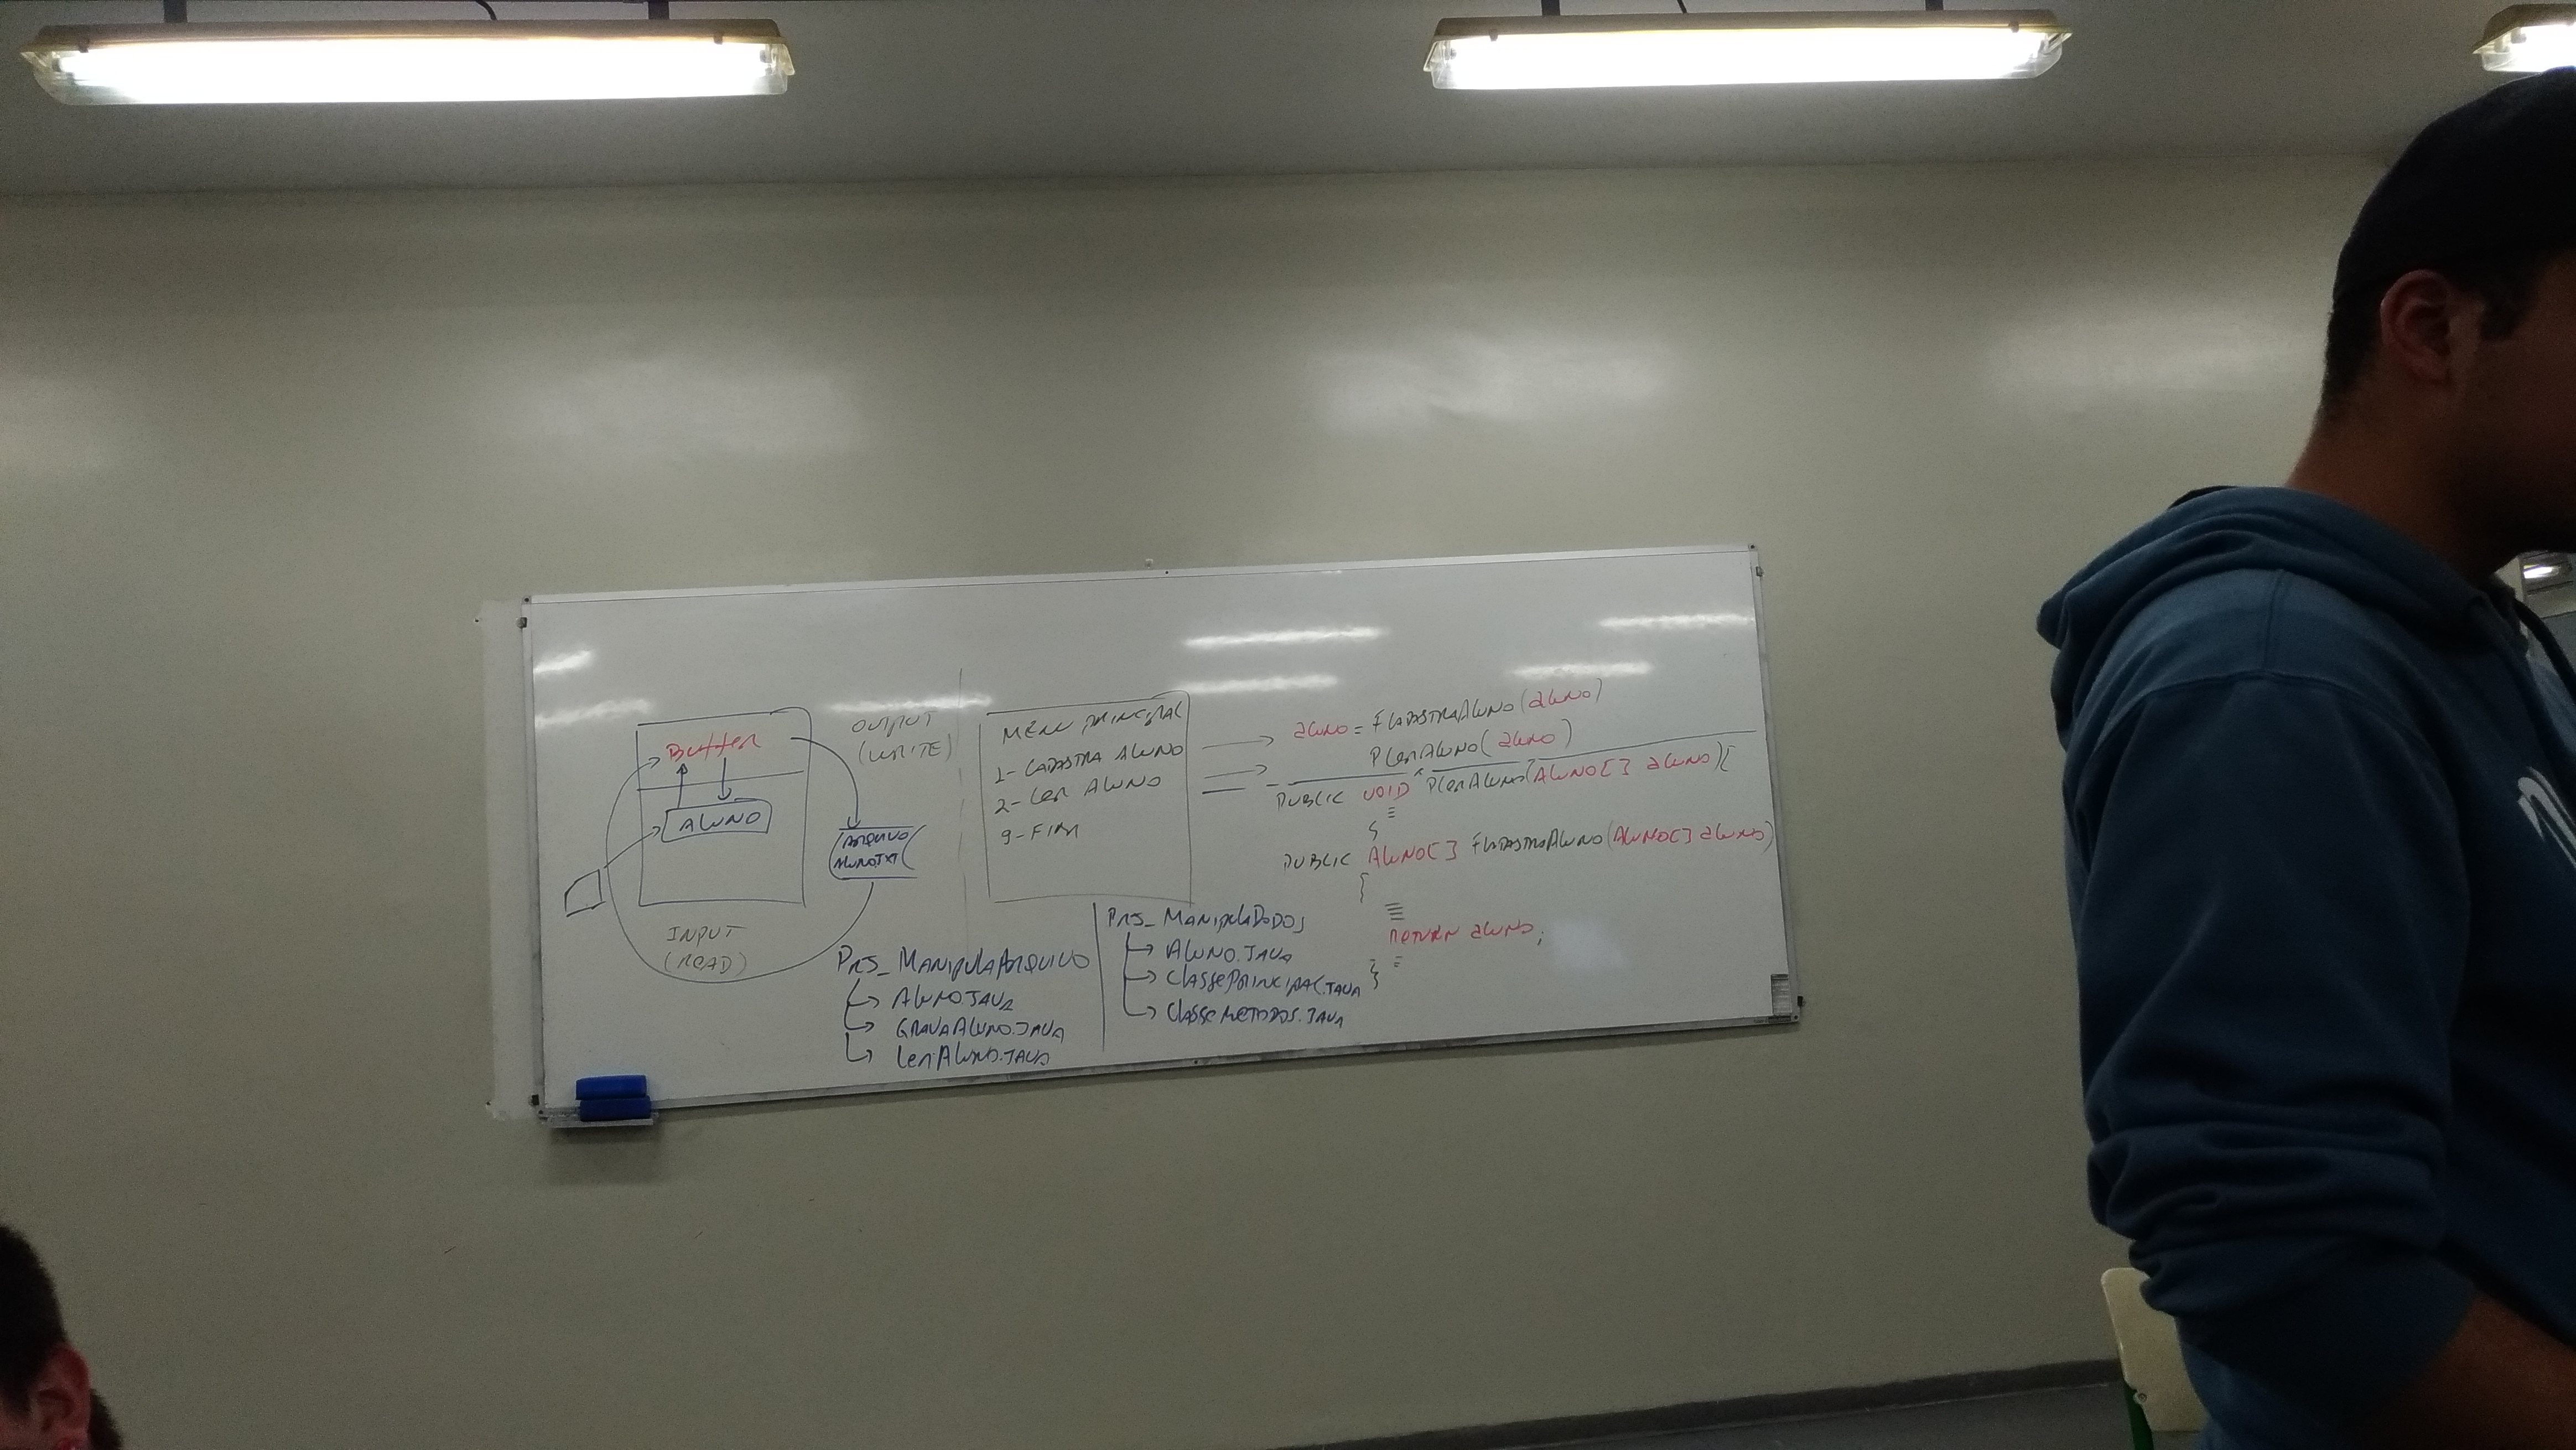 Buffer
ALUNO
OUTPUT
(WRITE)
ARQUIVO
ALUNO.TXT
INPUT
(READ)
MENU PRINCIPAL
1- CADASTRA ALUNO
2- Ler ALUNO
9- FIM
aluno = FCADASTRAALUNO(aluno)
PLerALUNO(aluno)
PUBLIC VOID PLerALUNO(ALUNO[] aluno){
}
PUBLIC ALUNO[] FCADASTRAALUNO(ALUNO[] aluno)
{
RETURN aluno;
}
PRJ_MANIPULAARQUIVO
ALUNO.JAVA
GRAVAALUNO.JAVA
LerALUNO.JAVA
PRJ_MANIPULADADOS
ALUNO.JAVA
CLASSEPRINCIPAL.JAVA
CLASSEMETODOS.JAVA